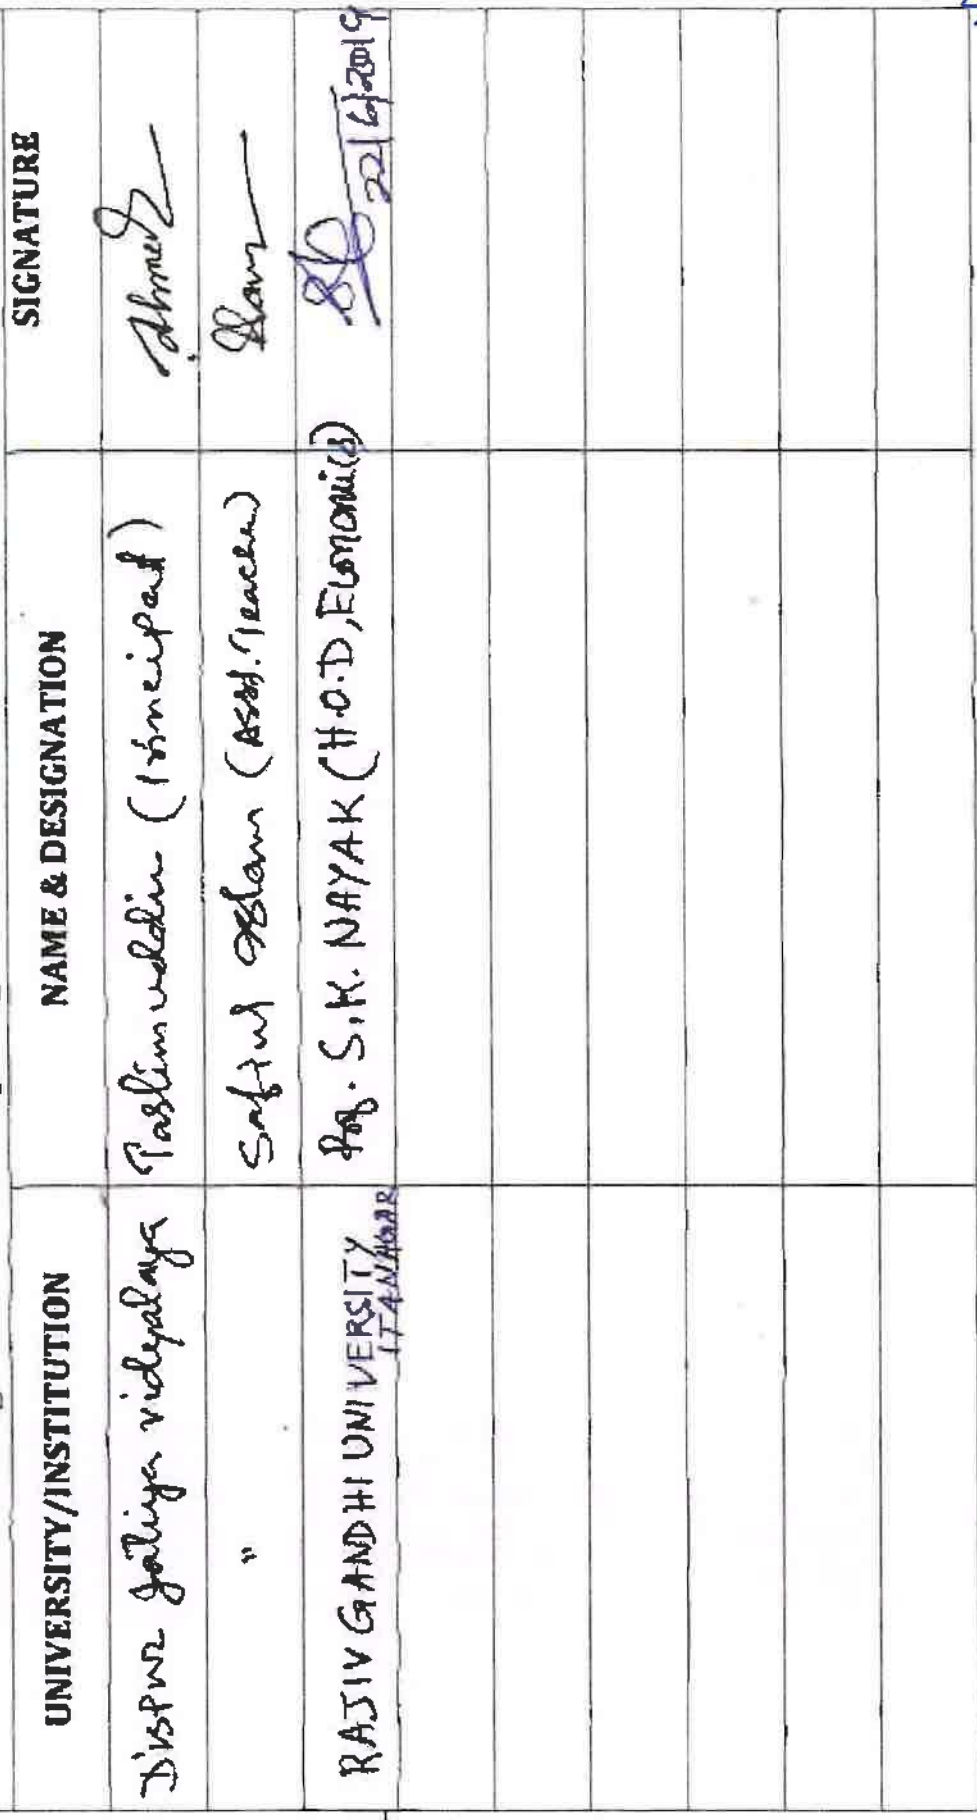 UNIVERSITY/INSTITUTION NAME & DESIGNATION SIGNATURE
Dispur Jatiya vidyalaya Taslimuddin (Principal) Ahmed
" Safiul Islam (Asst. Teacher) Islam
RAJIV GANDHI UNIVERSITY Prof. S.K. NAYAK (H.O.D, Economics) 22/6/2019
ITANAGAR